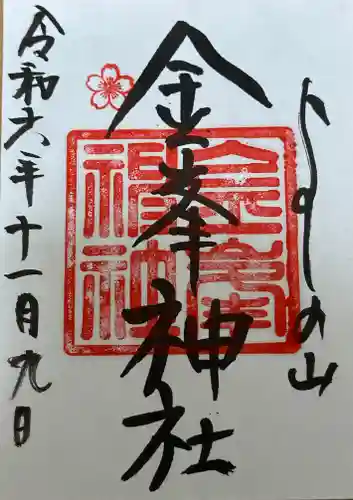 よしの山
金峯神社
令和六年十一月九日
金峯神社